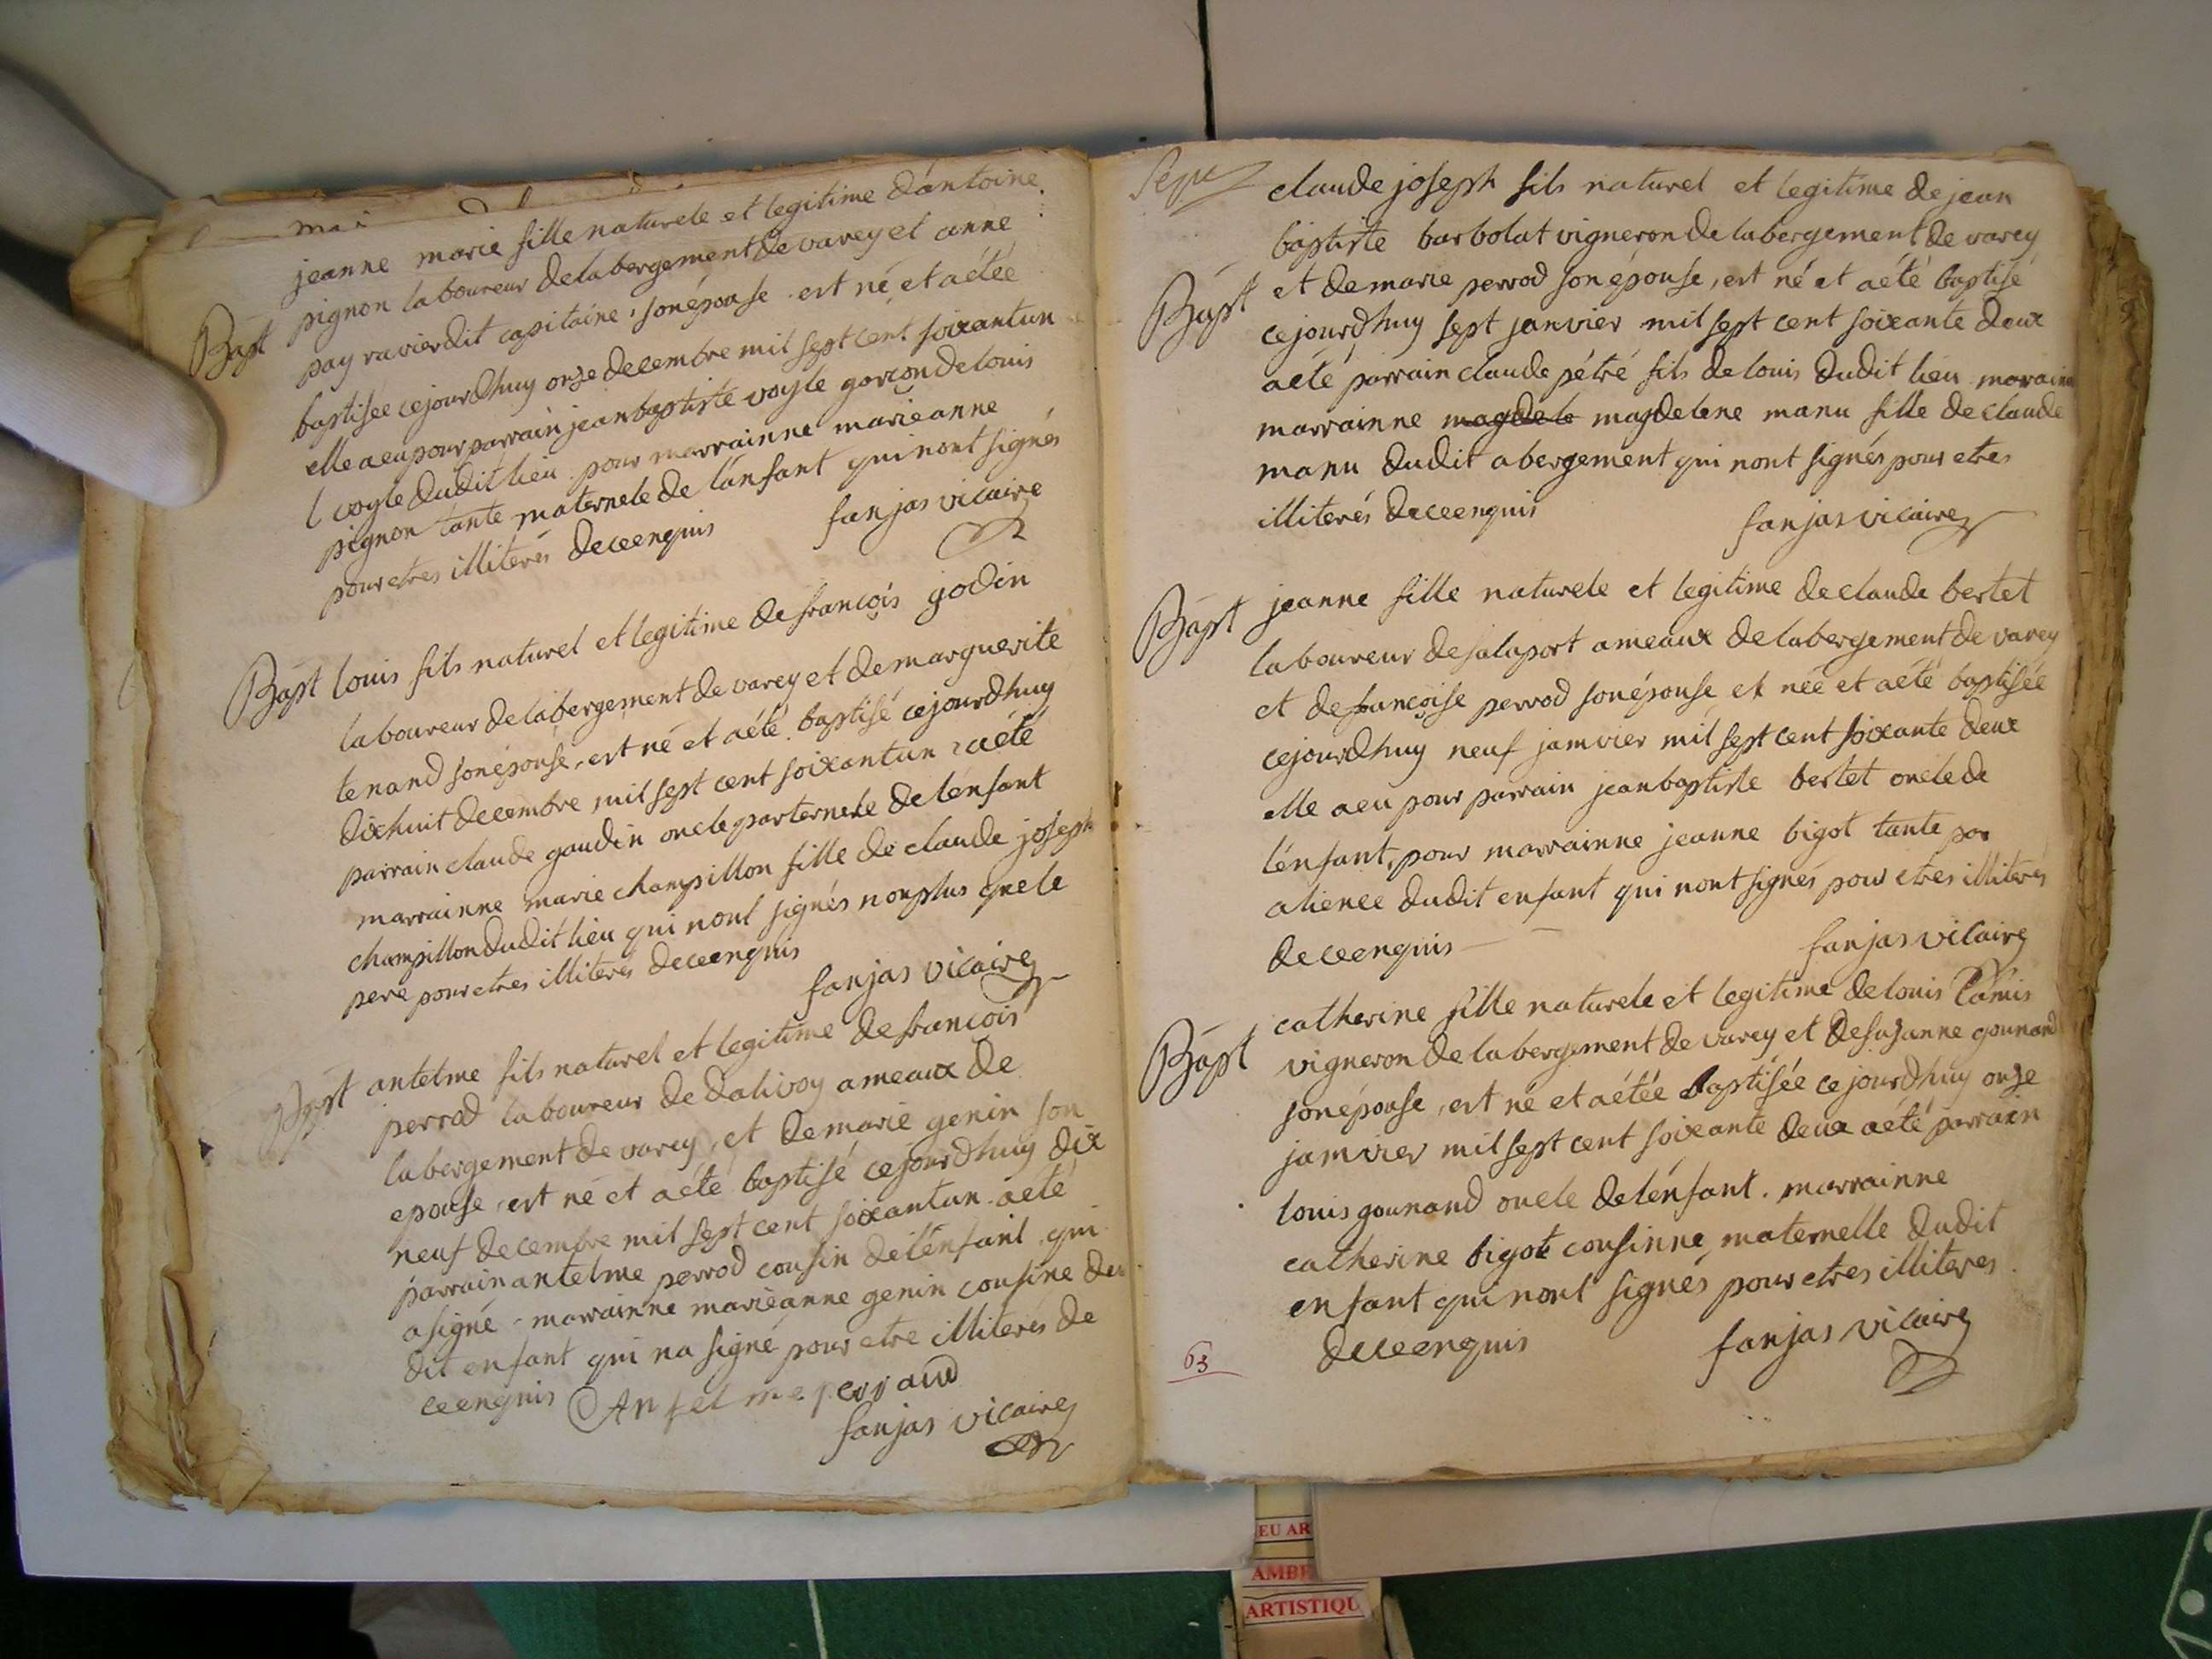 jeanne marie fille naturele et legitime d'antoine
pignon laboureur de labergement de varey et anne
Bapt
pay ravier dit capitaine, son épouse est né et aétée
baptisée cejourdhuy onze decembre mil sept cent soixantun
elle aeu pour parrain jean baptiste voyle garçon de louis
voyle dudit lieu pour marrainne marieanne
pignon tante maternele de lanfant qui nont signés
pour etres illiterés de ce enquis fanjas vicaire
Bapt louis fils naturel et legitime de françois godin
laboureur de labergement de varey et de marguerite
tenand son épouse, est né et aété baptisé cejourdhuy
dixhuit decembre mil sept cent soixantun aété
parrain claude gaudin oncle parternele de lénfant
marrainne marie champillon fille de claude joseph
champillon dudit lieu qui nont signés nonplus que le
pere pour etres illiterés de ce enquis
fanjas vicaire
Bapt antelme fils naturel et legitime de françois
perrod laboureur de dalivoy ameaux de
labergement de varey, et de marie genin son
epouse, est né et aété baptisé cejourdhuy dix
neuf decembre mil sept cent soixantun aété
parrain antelme perrod cousin de lénfant qui
a signé - marrainne marieanne genin cousine du
dit enfant qui na signé pour etre illiterés de
ce enquis Antelme perraud
fanjas vicaire
claude joseph fils naturel et legitime de jean
baptiste barbolat vigneron de labergement de varey
Bapt
et de marie perrod son épouse, est né et aété baptisé
cejourdhuy sept janvier mil sept cent soixante deux
aété parrain claude pétré fils de louis dudit lieu maraine
marrainne magdele magdelene manu fille de claude
manu dudit abergement qui nont signés pour etres
illiterés de ce enquis fanjas vicaire
Bapt
jeanne fille naturele et legitime de claude bertet
laboureur de salaport ameaux de labergement de varey
et de francoise perrod son épouse, et néé et aété baptisée
cejourdhuy neuf jamvier mil sept cent soixante deux
elle aeu pour parrain jean baptiste bertet oncle de
lénfant, pour marrainne jeanne bigot tante par
alience dudit enfant qui nont signés pour etres illiterés
de ce enquis fanjas vicaire
catherine fille naturele et legitime de louis
Bapt
vigneron de labergement de varey et de suzanne gounand
son épouse, est né et aétée baptisée ce jourdhuy onze
jamvier mil sept cent soixante deux aété parrain
louis gounand oncle de lénfant. marrainne
catherine bigote cousinne maternelle dudit
enfant qui nont signés pour etres illiteres
de ce enquis fanjas vicaire
63
EU AR
AMBE
ARTISTIQU